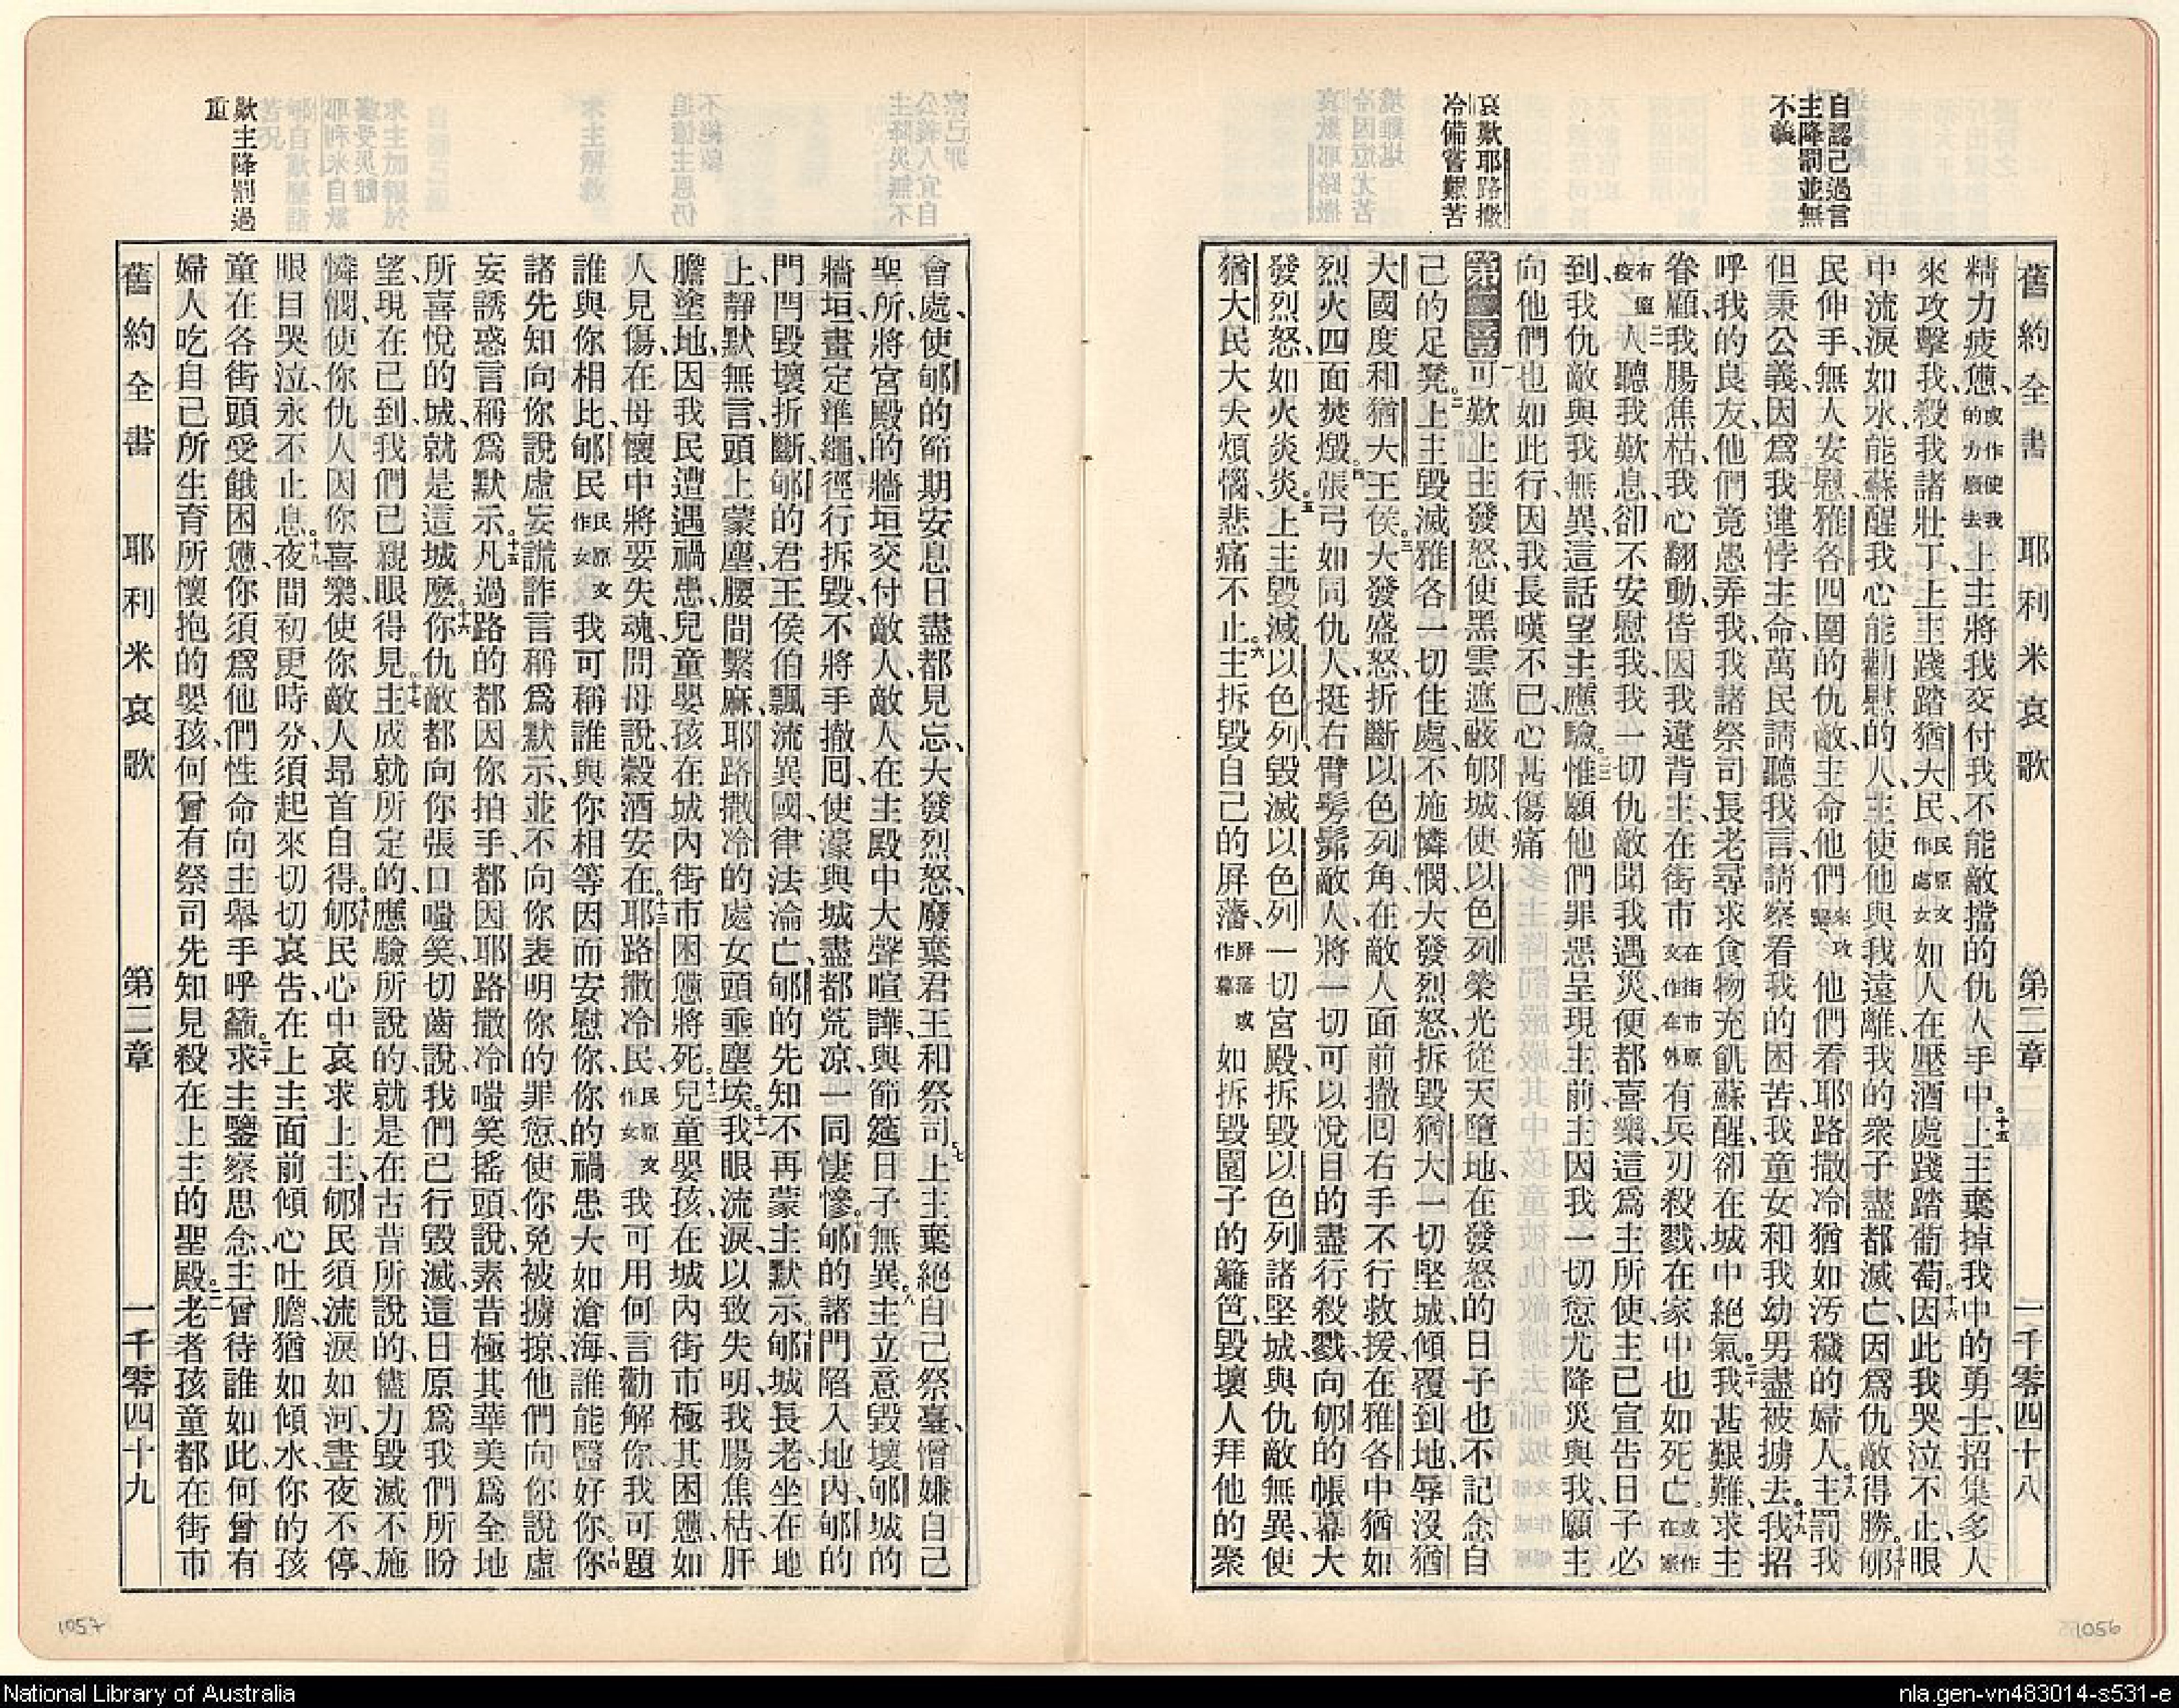 自認己過言
主降罰並無
不義
哀歎耶路撒
冷備嘗艱苦
舊約全書 耶利米哀歌 第二章 一千零四十八
精力疲憊、或作使我的力廢去上主將我交付我不能敵擋的仇人手中。十五上主棄掉我中的勇士、招集多人
來攻擊我、殺我諸壯丁、上主踐踏猶大民、民原文作處女如人在壓酒處踐踏葡萄。十六因此我哭泣不止、眼
中流淚如水、能蘇醒我心能勸慰的人、主使他與我遠離、我的衆子盡都滅亡、因爲仇敵得勝。十七郇
民伸手、無人安慰、雅各四圍的仇敵、主命他們來攻擊、他們看耶路撒冷猶如汚穢的婦人。十八主罰我
但秉公義、因爲我違悖主命、萬民請聽我言、請察看我的困苦、我童女和我幼男盡被擄去。十九我招
呼我的良友、他們竟愚弄我、我諸祭司長老尋求食物充飢蘇醒、卻在城中絕氣。二十我甚艱難、求主
眷顧、我腸焦枯、我心翻動、皆因我違背主、在街市在街市原文作在外有兵刃殺戮、在家中也如死亡。或作在家
有瘟疫二一人聽我歎息、卻不安慰我、我一切仇敵聞我遇災、便都喜樂、這爲主所使、主已宣告日子必
到、我仇敵與我無異、這話望主應驗。二二惟願他們罪惡呈現主前、主因我一切愆尤降災與我、願主
向他們也如此行、因我長嘆不已、心甚傷痛
第二章一可歎上主發怒、使黑雲遮蔽郇城、使以色列榮光從天墮地、在發怒的日子也不記念自
己的足凳。二上主毀滅雅各一切住處、不施憐憫、大發烈怒、拆毀猶大一切堅城、傾覆到地、辱沒猶
大國度和猶大王侯。三大發盛怒、折斷以色列角、在敵人面前撤回右手不行救援、在雅各中猶如
烈火四面焚燬。四張弓如同仇人、挺右臂髣髴敵人、將一切可以悅目的盡行殺戮、向郇的帳幕大
發烈怒、如火炎炎。五上主毀滅以色列、毀滅以色列一切宮殿、拆毀以色列諸堅城、與仇敵無異、使
猶大民大大煩惱、悲痛不止。六主拆毀自己的屏藩、屏藩或作幕如拆毀園子的籬笆、毀壞人拜他的聚
1056
歎主降罰過
重
會處、使郇的節期安息日盡都見忘、大發烈怒、廢棄君王和祭司。七上主棄絕自己祭臺、憎嫌自己
聖所、將宮殿的牆垣交付敵人、敵人在主殿中大聲喧譁、與節筵日子無異。八主立意毀壞郇城的
牆垣、畫定準繩、徑行拆毀、不將手撤回、使濠與城盡都荒涼、一同悽慘。九郇的諸門陷入地內、郇的
門閂毀壞折斷、郇的君王侯伯飄流異國、律法淪亡、郇的先知不再蒙主默示。十郇城長老坐在地
上、靜默無言、頭上蒙塵、腰間繫麻、耶路撒冷的處女頭垂塵埃。十一我眼流淚、以致失明、我腸焦枯、肝
膽塗地、因我民遭遇禍患、兒童嬰孩在城內街市困憊將死。十二兒童嬰孩、在城內街市極其困憊如
人見傷、在母懷中將要失魂、問母說、穀酒安在。十三耶路撒冷民、民原文作女我可用何言勸解你、我可題
誰與你相比、郇民民原文作女我可稱誰與你相等、因而安慰你、你的禍患大如滄海、誰能醫好你。十四你
諸先知向你說虛妄謊詐言、稱爲默示、並不向你表明你的罪愆、使你免被擄掠、他們向你說虛
妄誘惑言、稱爲默示。十五凡過路的都因你拍手、都因耶路撒冷嗤笑搖頭、說、素昔極其華美爲全地
所喜悅的城、就是這城麼。十六你仇敵都向你張口嗤笑切齒、說、我們已行毀滅、這日原爲我們所盼
望、現在已到、我們已親眼得見。十七主成就所定的、應驗所說的、就是在古昔所說的、儘力毀滅不施
憐憫、使你仇人因你喜樂、使你敵人昂首自得。十八郇民心中哀求上主、郇民須流淚如河、晝夜不停、
眼目哭泣、永不止息。十九夜間初更時分、須起來切切哀告、在上主面前傾心吐膽、猶如傾水、你的孩
童在各街頭受餓困憊、你須爲他們性命向主舉手呼籲。二十求主鑒察思念、主曾待誰如此、何曾有
婦人吃自己所生育所懷抱的嬰孩、何曾有祭司先知見殺在上主的聖殿。二一老者孩童都在街市
舊約全書 耶利米哀歌 第二章 一千零四十九
1057
National Library of Australia
nla.gen-vn483014-s531-e